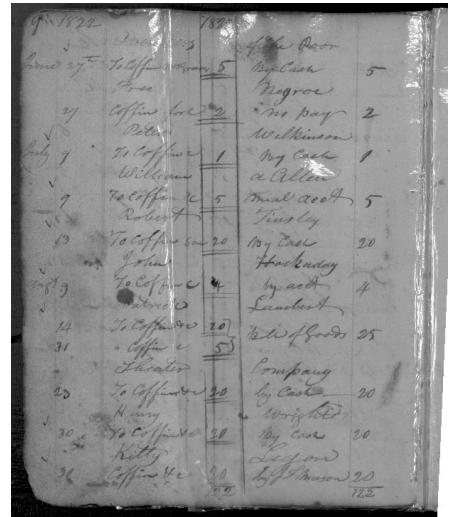 1822 182
of the Poor
June 27th To Coffin 5 By Cash 5
Free Negroe
27 Coffin for 2 no pay 2
Peter Wilkinson
July 9 To Coffin &c 1 By Cash 1
William a Allen
9 To Coffin &c 5 acct 5
Robert Tinsley
13 To Coffin 20 By Cash 20
John Hockaday
9 To Coffin &c 4 by acct 4
Patrick Lambert
14 To Coffin &c 20 of Goods 25
31 " Coffin &c 5
Theater Company
23 To Coffin &c 20 by Cash 20
Henry Wright
30 To Coffin &c 20 By Cash 20
Kitty Lyon
Coffin &c 20 by 20
122 122